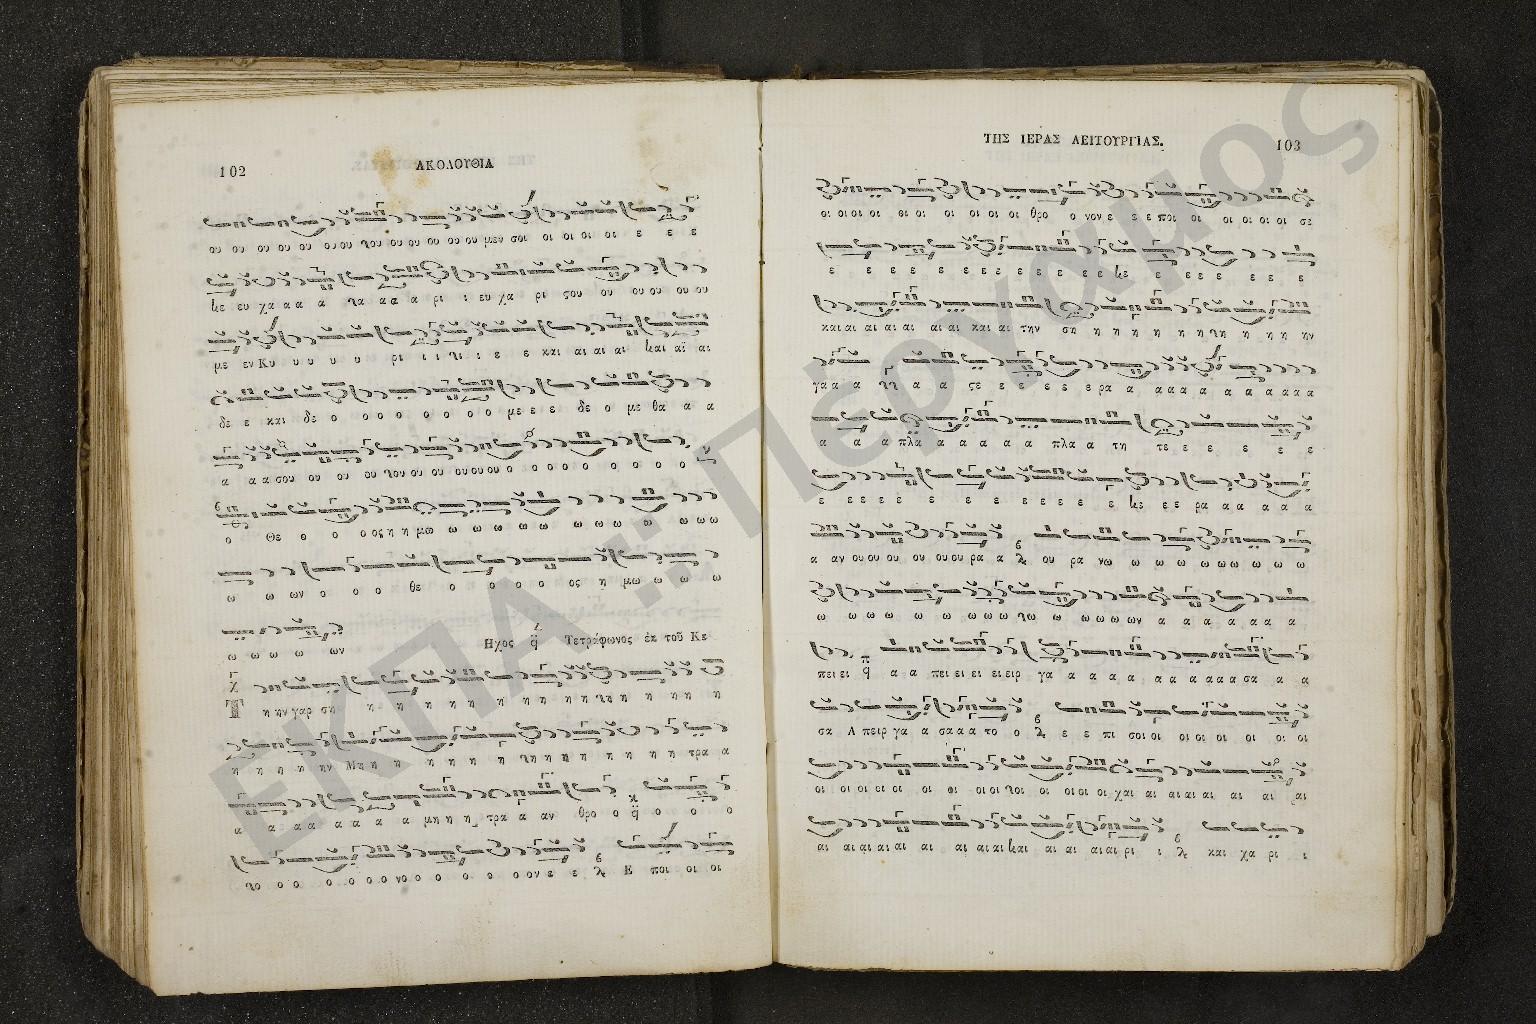 102
ΑΚΟΛΟΥΘΙΑ
ου ου ου ου ου ου ου χου ου ου ου ου ου μεν σοι οι οι οι οι ε ε ε
κε ευ χα α α α χα αα α ρι ι ευ χα ρι ςου ου ου ου ου ου
με εν Κυ υ υ υ υ ρι ι ι χι ι ε ε και αι αι αι και αϊ αι
δε ε και δε ο ο ο ο ο ο ο ο με ε ε δε ο με θα α α
α α α σου ου ου ου χου ου ου ου ου ου ο ο ο ο ο ο ο ο ο ο
ο Θε ο ο ο ος η η μω ω ω ω ω ω ω ω ω ω ω ω
ω ω ων ο ο ο θε ο ο ο ο ο ος η μω ω ω ω
ω ω ω ω ων
Ηχος Τετράφωνος ἐκ τοῦ Κε
Τ η ην γαρ ση η η η η η η η η η χη η η η η
η η η η ην Μη η η η η η η χη η η η η η η τρα α
α α α α α α α α μη η η τρα α αν θρο ο ο ο ο
χο ο ο ο ο ο νο ο ο ο ο ο ον ε ε Ε ποι οι οι
ΤΗΣ ΙΕΡΑΣ ΛΕΙΤΟΥΡΓΙΑΣ.
103
οι οι οι οι οι οι οι οι οι οι θρο ο νον ε ε ε ποι οι οι οι οι οι σε
ε ε ε ε ε ε ε ε ε ε ε ε κε ε ε ε ε ε ε ε
και αι αι αι αι αι αι και αι την ση η η η η η η χη η η η ην
γα α α α α α ςε ε ε ε ε ε ε ρα α α α α α α α α α
α α α πλα α α α α α πλα α τη τε ε ε ε ε ε
ε ε ε ε ε ε ε ε ε ε ε ε ε κε ε ε ρα α α α α
α αν ου ου ου ου ου ου ρα α ου ρα νω ω ω ω ω ω ω ω ω
ω ω ω ω ω ω ω ω χω ω ω ω ω ων α α α α α α α
πει ει α α πει ει ει ει ειρ γα α α α α α α α α α σα α α
σα Α πειρ γα α σα α α το ο ε ε ε πι σοι οι οι οι οι οι οι οι
οι οι οι οι οι οι οι οι οι χοι οι οι οι οι χαι αι αι αι αι αι αι αι
αι αι αι αι αι αι αι αι αι και αι αι αι αι ρι ι και χα ρι ι
ΕΚΠΑ :: Πέργαμος